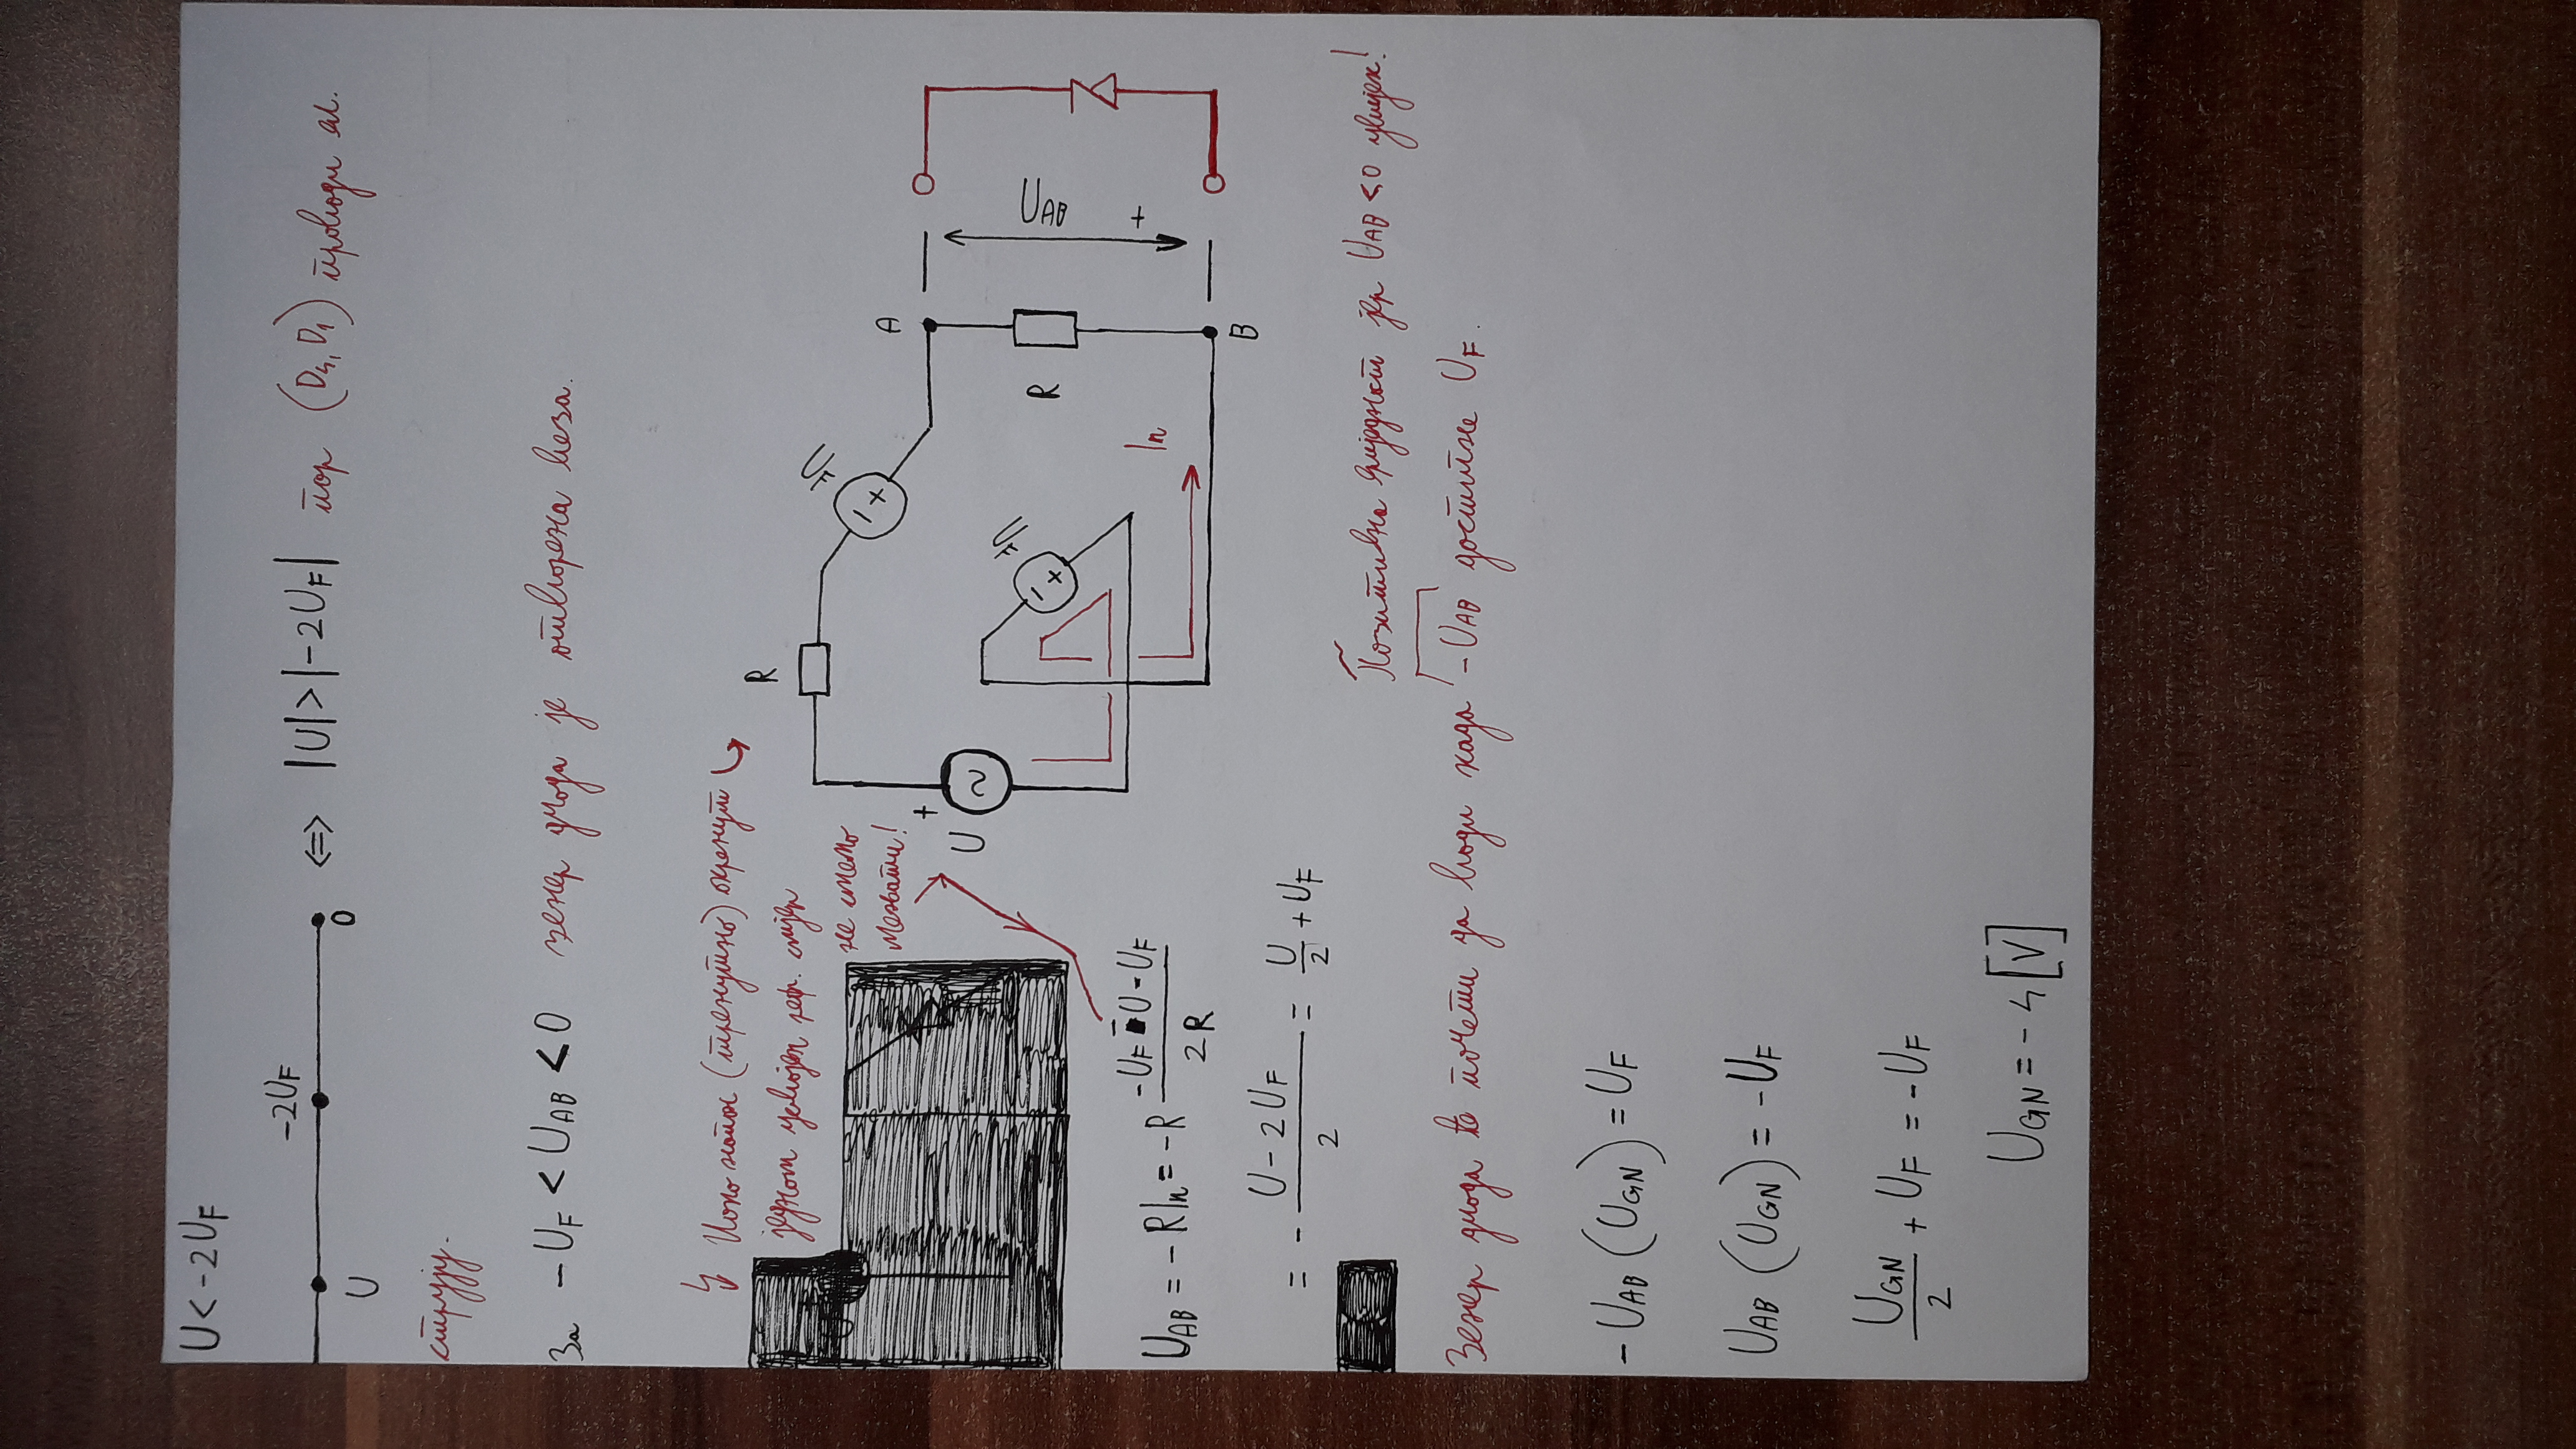 U < -2U_F
-2U_F
U 0 ⇔ |U| > |-2U_F| пар (D4, D1) проводи ел.
струју.
За -U_F < U_AB < 0 зенер диода је отворена веза.
Иако напон (тренутно) окренут
једном усвојен реф. смјер
не смемо
мењати!
R
U_F
A
+
U
U_F
R
U_AB
+
In
B
U_AB = -RIn = -R (-U_F - U - U_F) / 2R
= - (U - 2U_F) / 2 = U/2 + U_F
Позитивна вриједност јер U_AB < 0 увијек!
Зенер диода ће почети да води када -U_AB достигне U_F.
-U_AB (U_GN) = U_F
U_AB (U_GN) = -U_F
U_GN/2 + U_F = -U_F
U_GN = -4 [V]